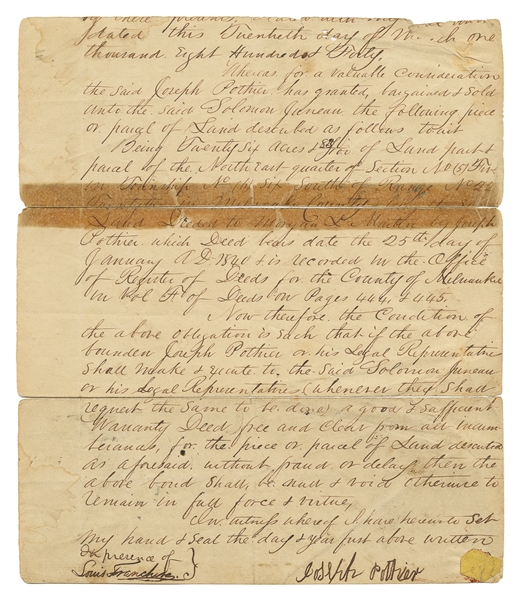 by these presents,
dated this Twentieth day of March one
thousand Eight Hundred & Forty,
Whereas for a valuable Consideration
the said Joseph Pothier has granted, bargained & sold
unto the said Solomon Juneau the following piece
or parcel of Land described as follows to wit
Being Twenty Six Acres of Land part &
parcel of the North East quarter of Section No (5) Five
in Township No Six South of Range No 22
Pothier which Deed bears date the 25th day of
January A.D. 1840 & is recorded in the Office
of Register of Deeds for the County of Milwaukie
in Vol A of Deeds on Pages 444, & 445.
Now therefore the Condition of
the above obligation is such that if the above
bounden Joseph Pothier or his Legal Representative
Shall make & execute to the Said Solomon Juneau
or his Legal Representatives (whenever they Shall
request the Same to be done) a good & Sufficient
Warranty Deed, free and Clear from all incum-
berances, for the piece or parcel of Land described
as aforesaid without fraud or delay then the
above bond Shall be null & void otherwise to
remain in full force & virtue,
In witness whereof I have hereunto Set
my hand & Seal the day & year just above written
In presence of
Louis Joseph Pothier